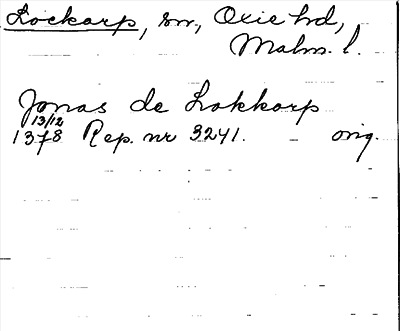 Lockarp, sn, Oxie hd,
Malm. l.
Jonas de Lokkorp
13/12
1378 Rep. nr 3241. - orig.